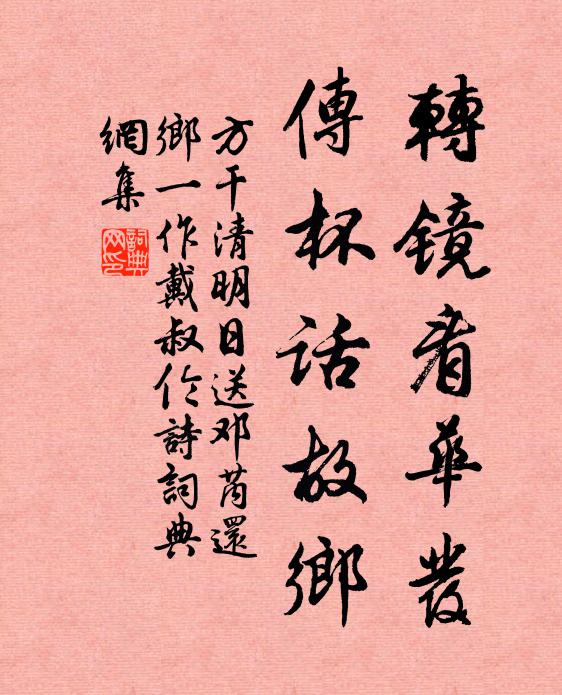 轉镜看華發
傳杯話故鄉
方干清明日送邓芮還
鄉一作戴叔伦詩詞典
網集
詞典网印